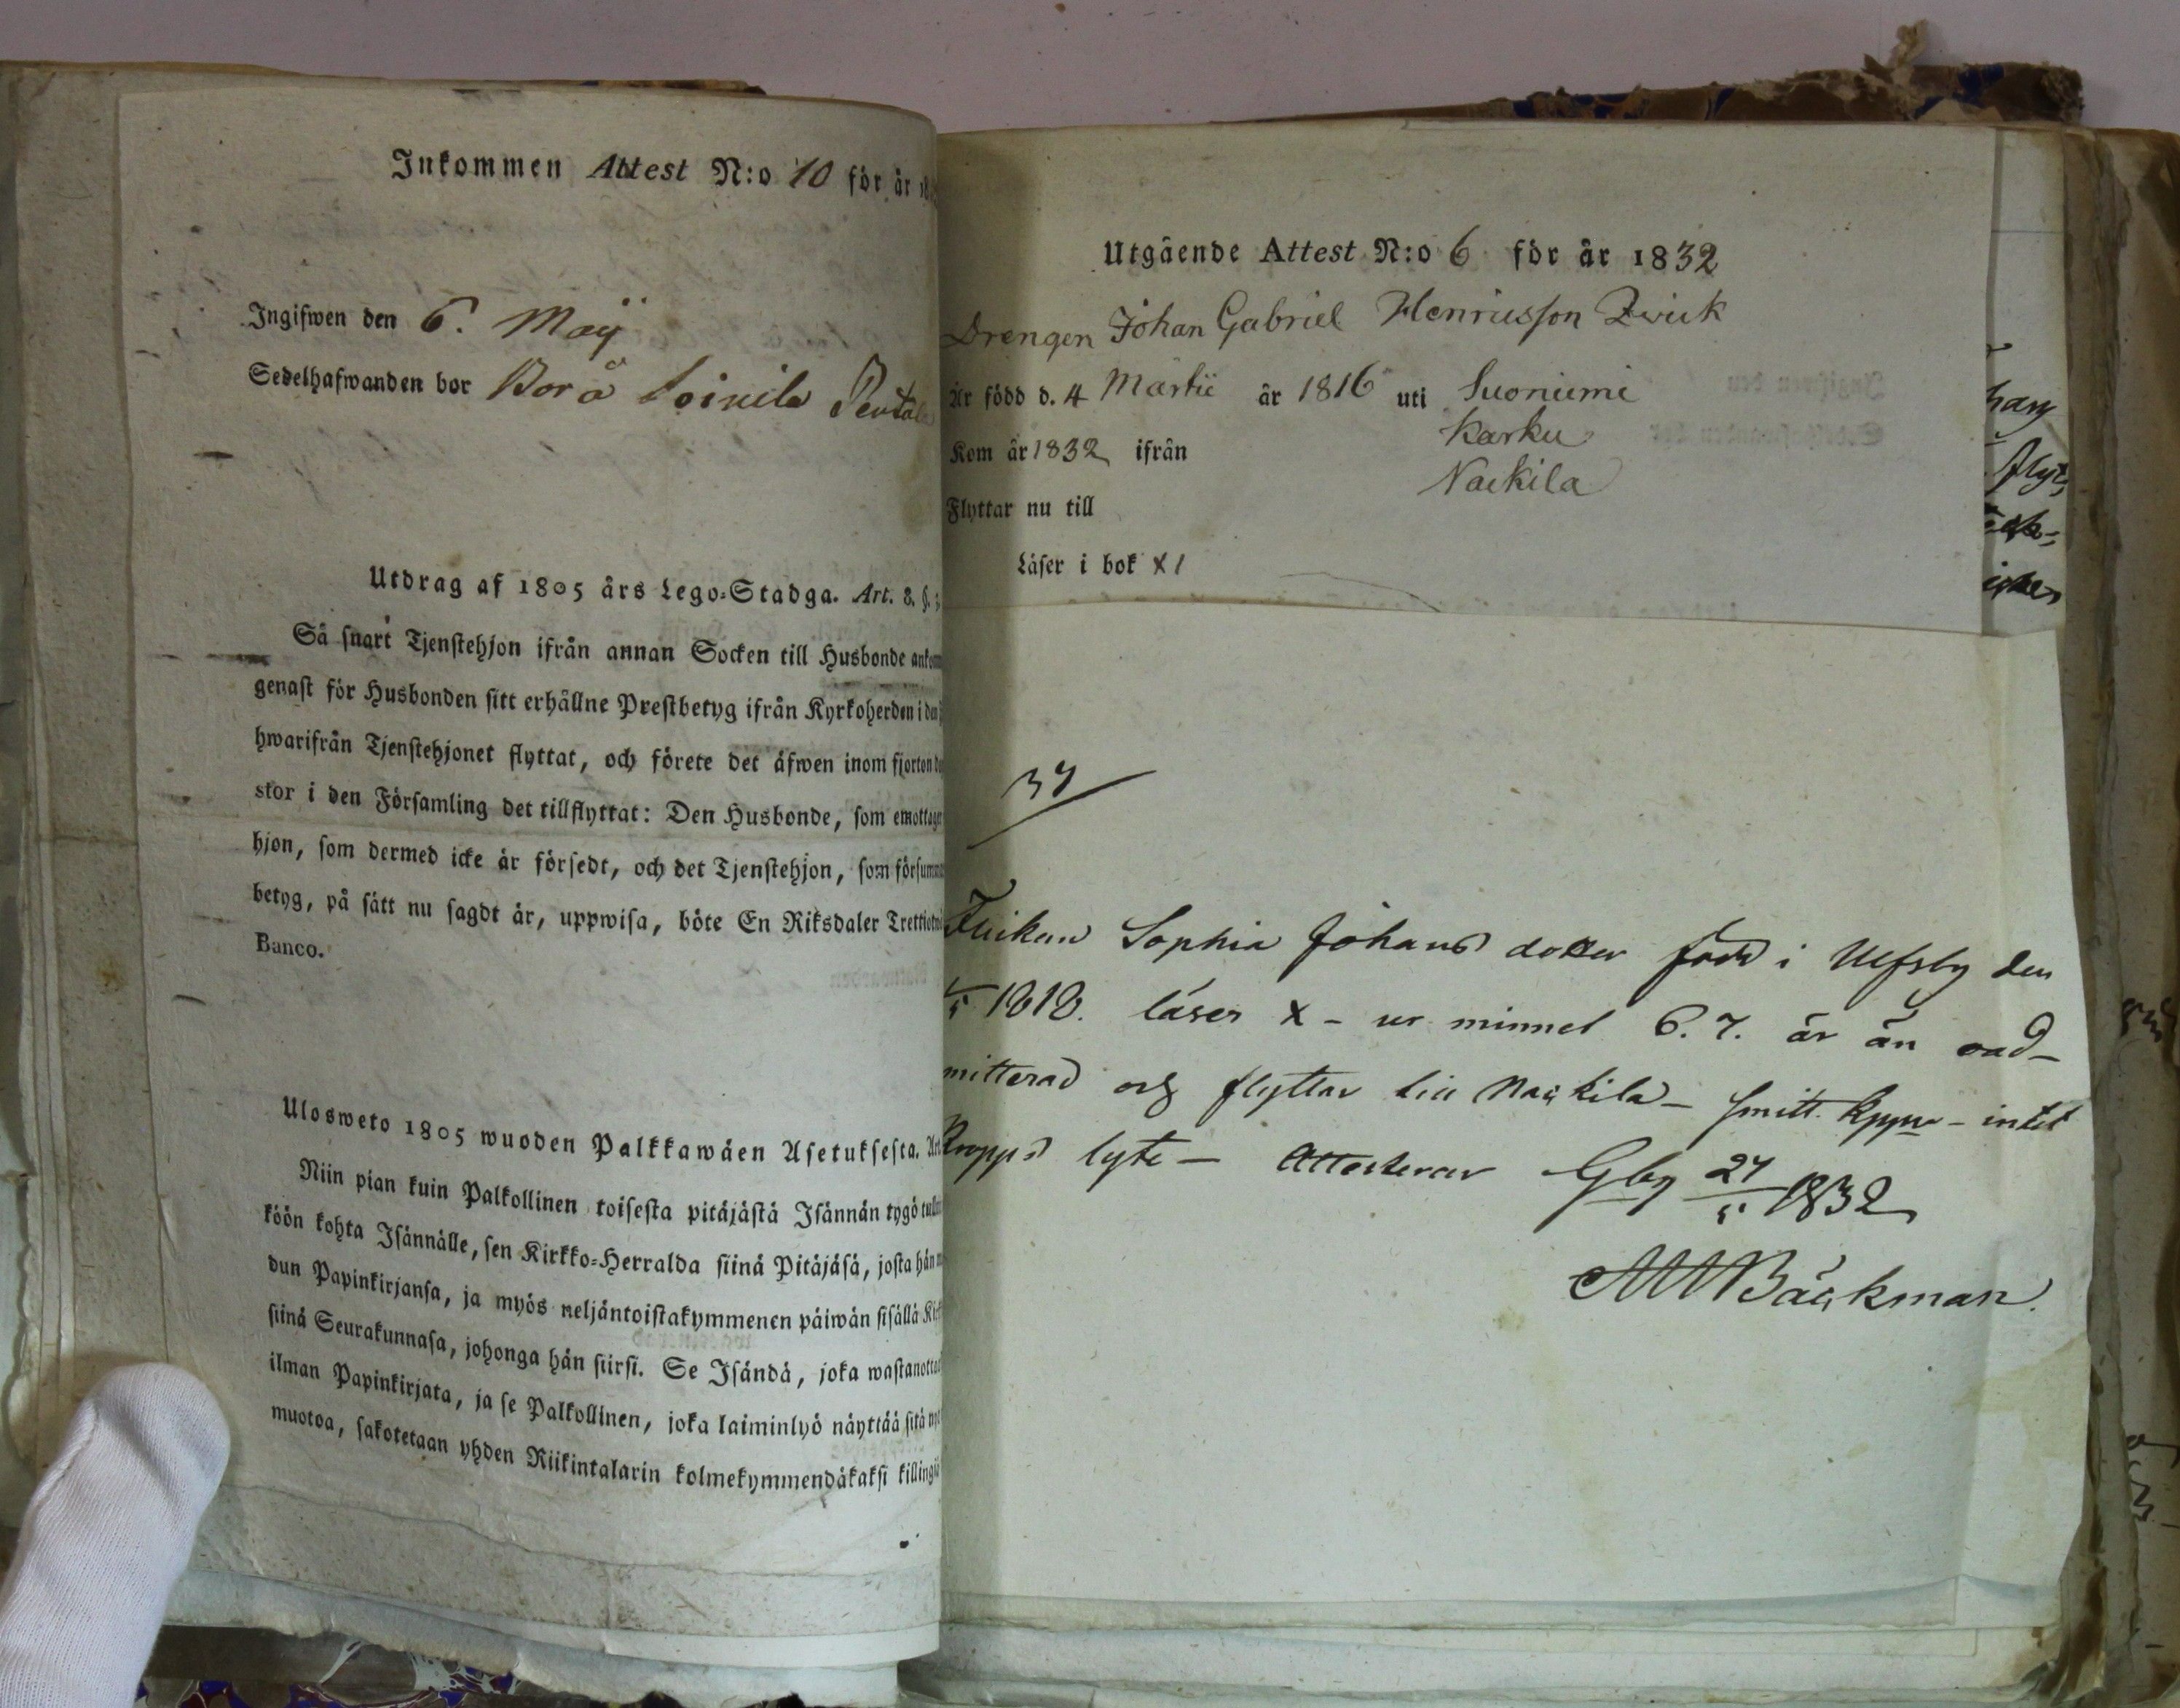 Inkommen Attest N:o 10 för år 18
Ingifwen den 6. Maÿ
Sedelhafwanden bor Bor å Loinila
Utdrag af 1805 års Lego-Stadga. Art. 8. §.
Så snart Tjenstehjon ifrån annan Socken till Husbonde ankom
genast för Husbonden sitt erhållne Prestbetyg ifrån Kyrkoherden i den
hwarifrån Tjenstehjonet flyttat, och förete det åfwen inom fjorton
skor i den Församling det tillflyttat: Den Husbonde, som emottager
hjon, som dermed icke är försedt, och det Tjenstehjon, som försumm
betyg, på sätt nu sagdt är, uppwisa, böte En Riksdaler Trettiotwå
Banco.
Ulosweto 1805 wuoden Palkkawäen Asetuksesta. Art.
Niin pian kuin Palkollinen toisesta pitäjästä Isännän tygö tull
köön kohta Isännälle, sen Kirkko-Herralda siinä Pitäjäsä, josta hän
dun Papinkirjansa, ja myös neljäntoistakymmenen päiwän sisällä Kir
siinä Seurakunnasa, johonga hän siirsi. Se Isändä, joka wastanottaa
ilman Papinkirjata, ja se Palkollinen, joka laiminlyö näyttää sitä
muotoa, sakotetaan yhden Riikintalarin kolmekymmendäkaksi killingiä
Utgående Attest N:o 6 för år 1832
Drengen Johan Gabriel Henricsson Zwick
År född d. 4 Martii år 1816 uti Suoniemi
Kom år 1832 ifrån Karku
Flyttar nu till Nackila
Läser i bok X1
34
Flickan Sophia Johans dotter född i Ulfsby den
1818. läser X - ur minnet 6. 7. är än oad-
mitterad och flyttar till Nackila - Smitt. Kppr - intet
Kropps lyte - Attesterar Gby 24/5 1832
Bäckman.